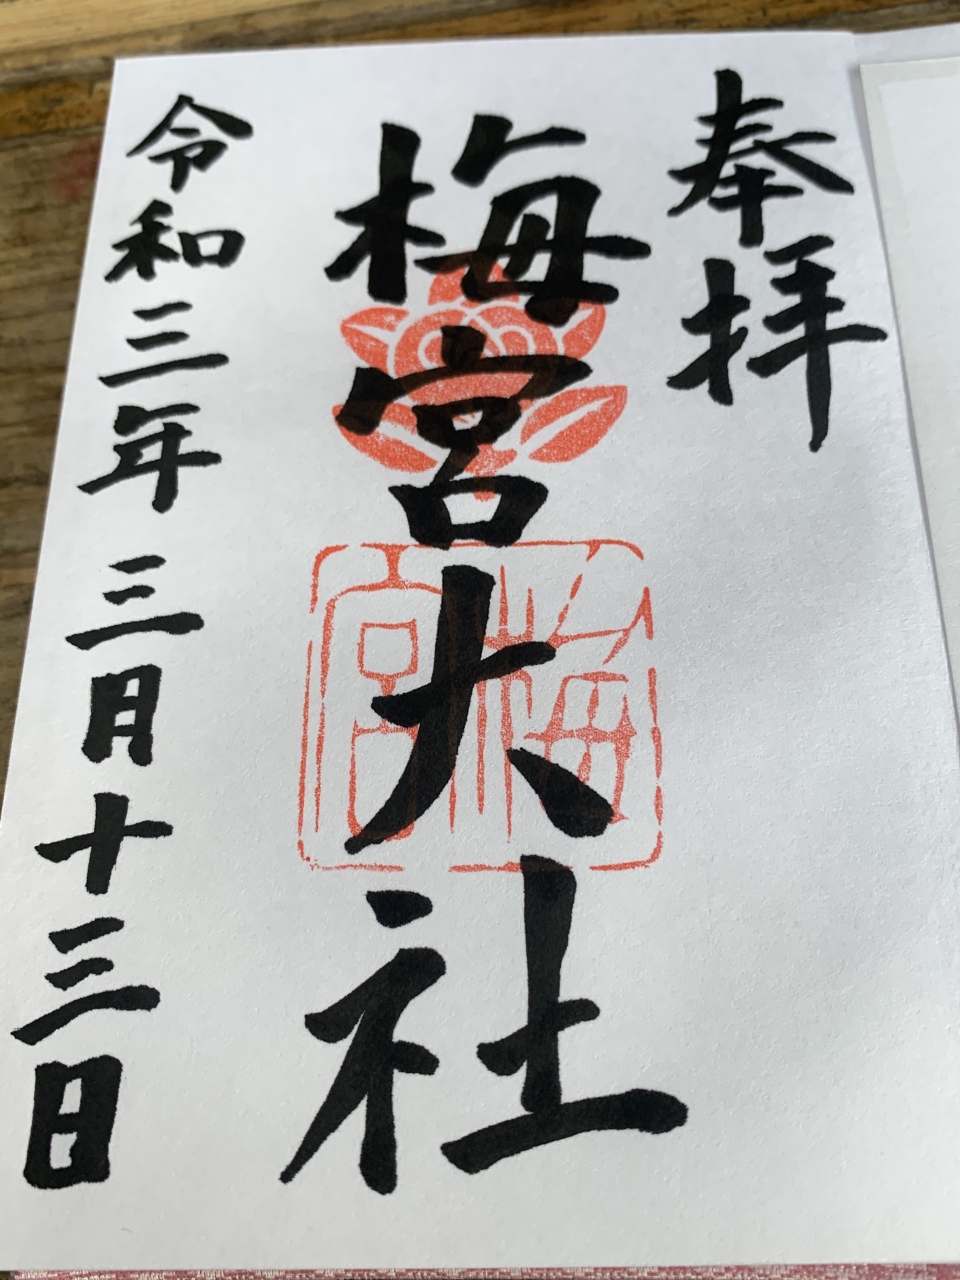 奉拝
梅宮大社
梅宮
令和三年三月十三日